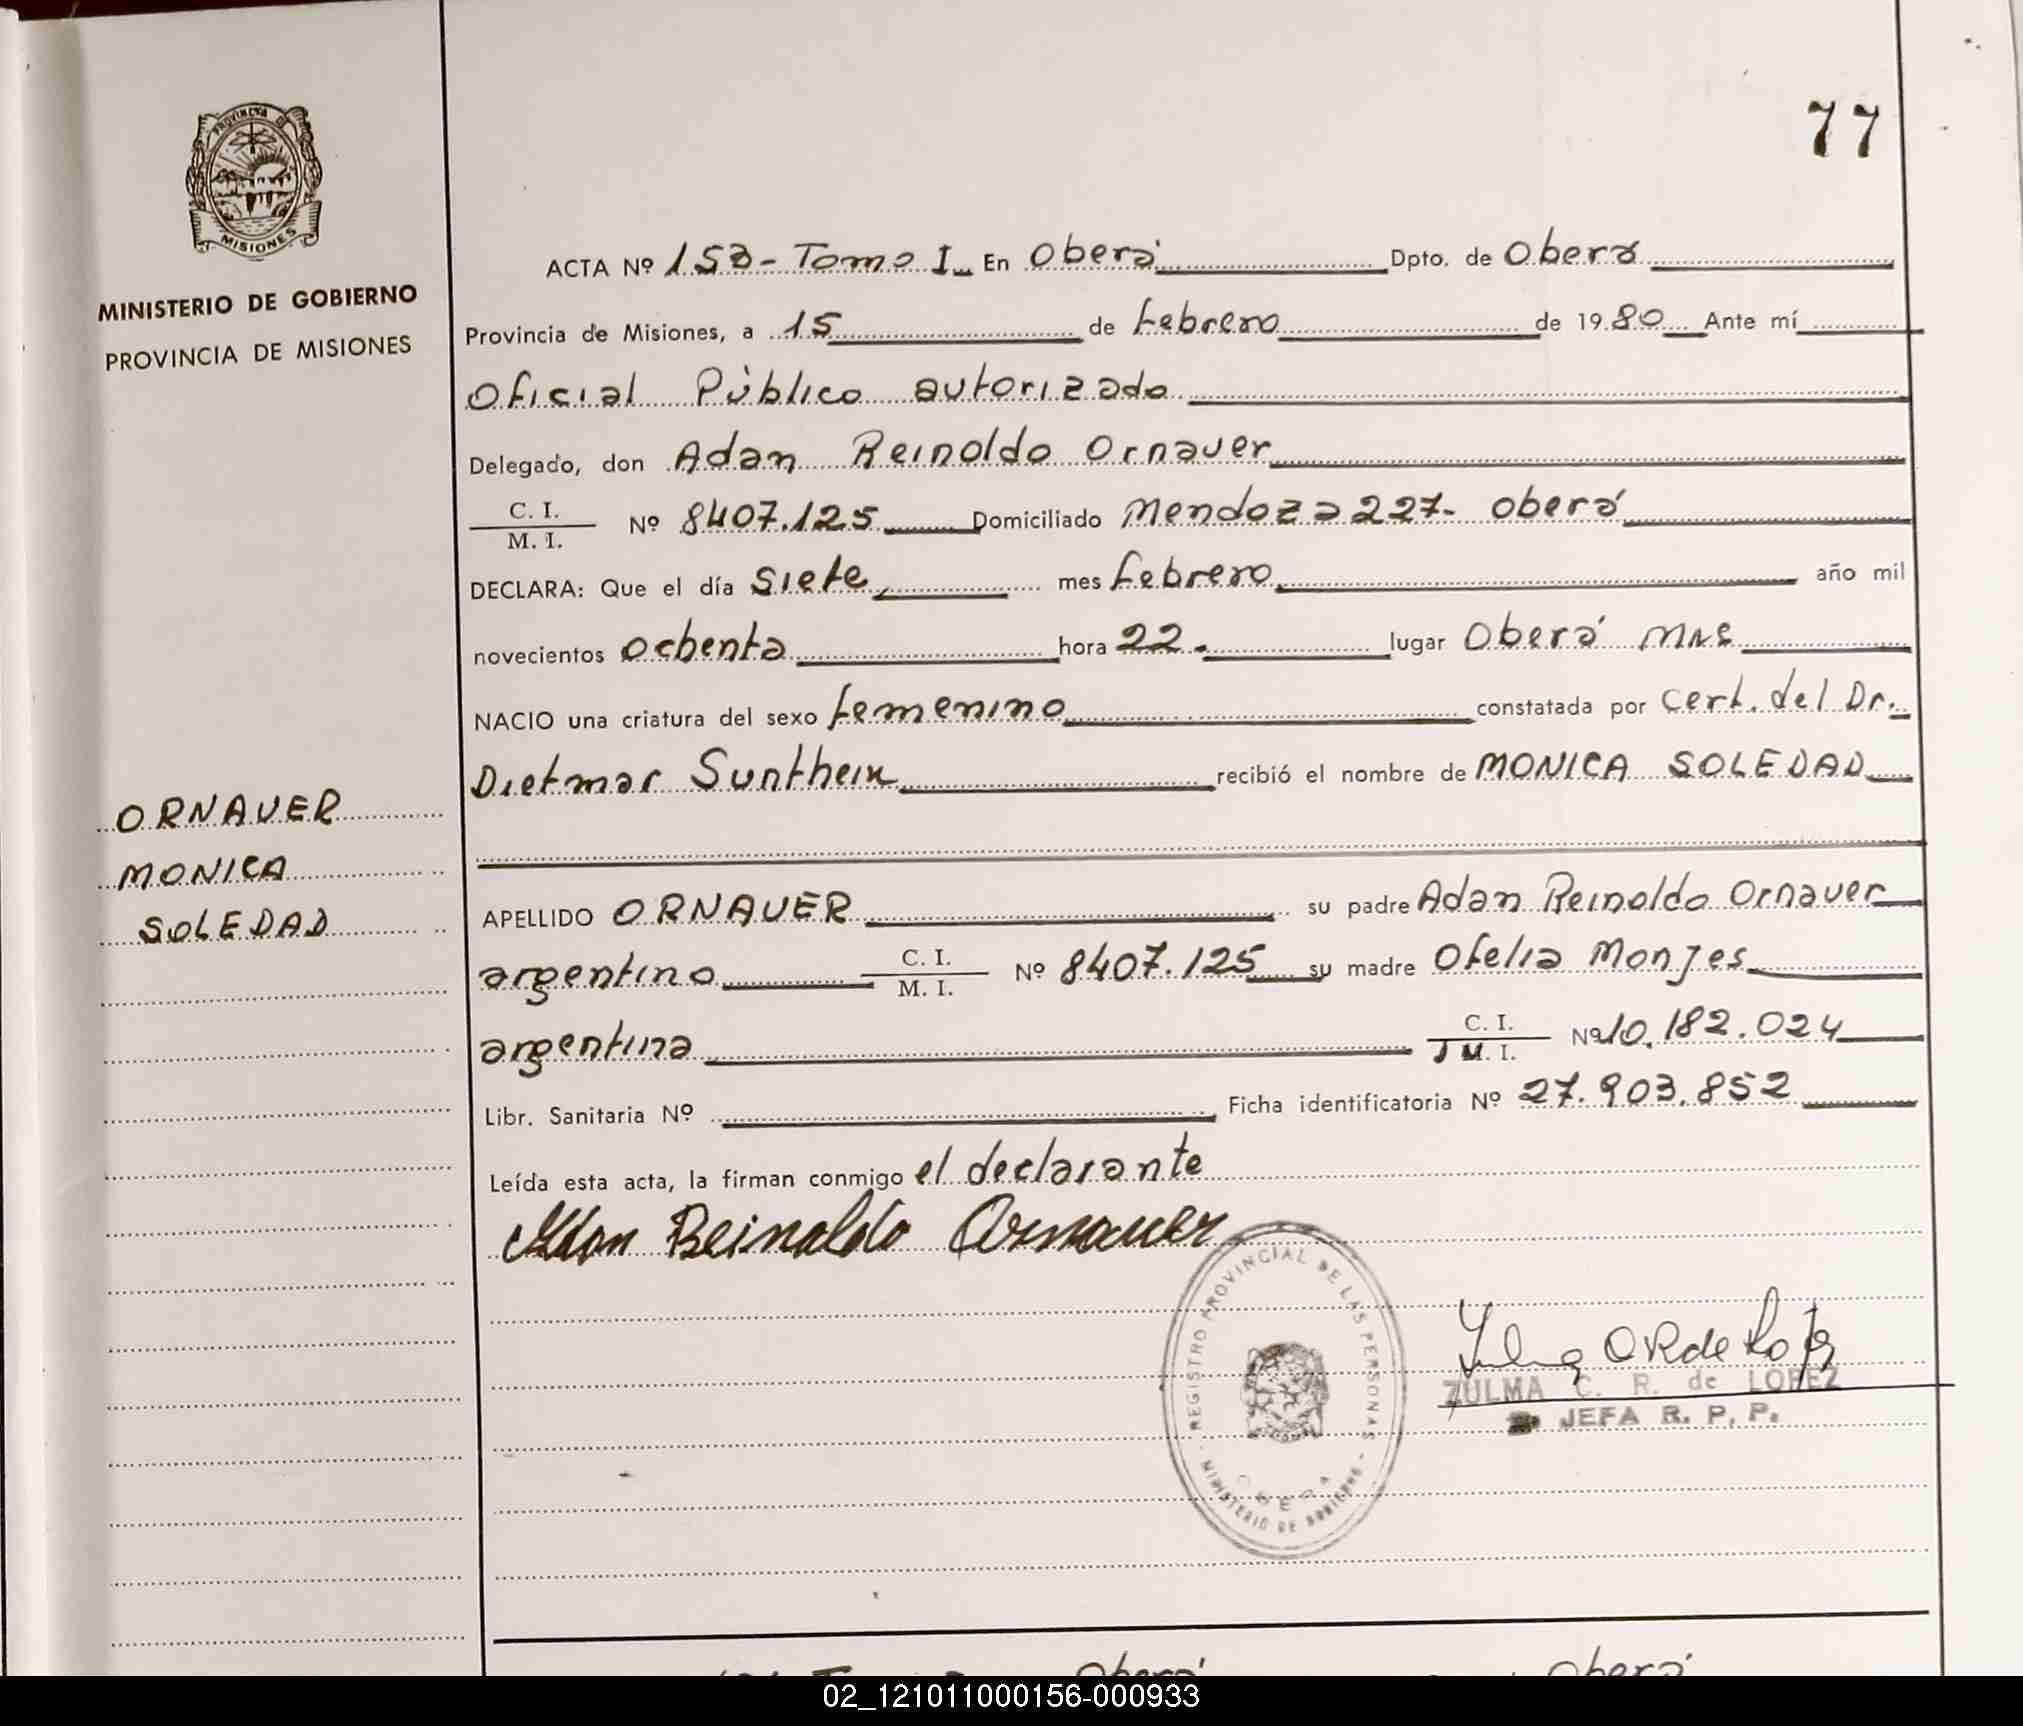 77
PROVINCIA DE
MISIONES
MINISTERIO DE GOBIERNO
PROVINCIA DE MISIONES
ACTA Nº 153 - Tomo I. En Oberá Dpto. de Oberá
Provincia de Misiones, a 15 de febrero de 1980 Ante mí
Oficial Público autorizado
Delegado, don Adan Reinoldo Ornauer
C. I.
M. I.
Nº 8407.125 Domiciliado Mendoza 227- Oberá
DECLARA: Que el día siete mes febrero año mil
novecientos ochenta hora 22. lugar Oberá Mns
NACIO una criatura del sexo femenino constatada por Cert. del Dr.
Dietmar Sunthein recibió el nombre de MONICA SOLEDAD
ORNAUER
MONICA
SOLEDAD
APELLIDO ORNAUER su padre Adan Reinoldo Ornauer
argentino C. I. M. I. Nº 8407.125 su madre Ofelia Monjes
argentina C. I. M. I. Nº 10.182.024
Libr. Sanitaria Nº Ficha identificatoria Nº 27.903.852
Leída esta acta, la firman conmigo el declarante
Adan Reinoldo Ornauer
REGISTRO PROVINCIAL DE LAS PERSONAS
MINISTERIO DE GOBIERNO
OBERA
ZULMA C. R. de LOPEZ
JEFA R. P. P.
Oberá Oberá
02_121011000156-000933